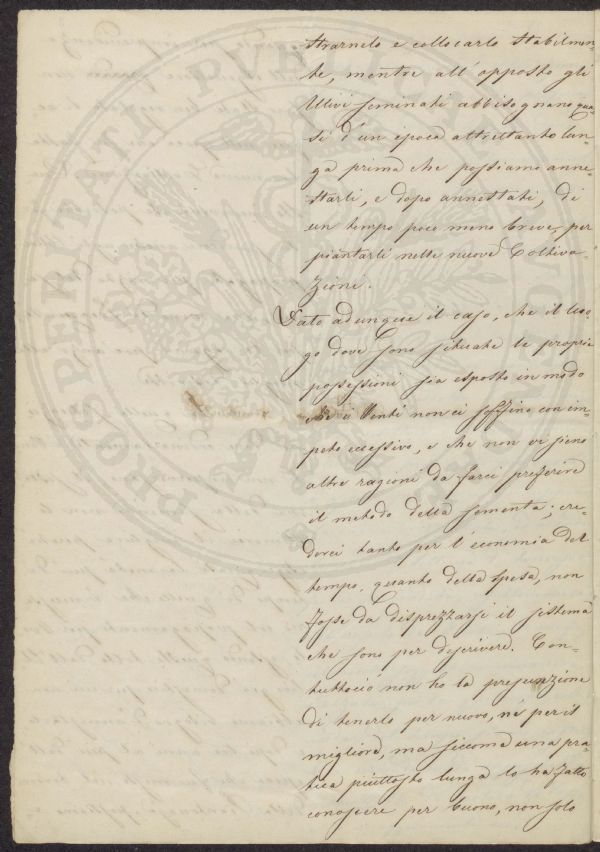 strarnelo e collocarlo stabilmen-
te, mentre all' opposto gli
Ulivi seminati abbisognano qua-
si d'un epoca altrettanto lun-
ga prima che possiamo anne-
starli, e dopo annestati, di
un tempo poco meno breve, per
piantarli nelle nuove Coltiva-
zioni.
Dato adunque il caso, che il luo-
go dove sono situate le proprie
possessioni sia esposto in modo
che i Venti non ci soffino con im-
peto eccessivo, e che non vi sieno
altre ragioni da farci preferire
il metodo della sementa; cre-
derei tanto per l'economia del
tempo, quanto della spesa, non
fosse da disprezzarsi il sistema
che sono per descrivere. Con-
tuttociò non ho la presunzione
di tenerlo per nuovo, nè per il
migliore, ma siccome una pra-
tica piuttosto lunga lo ha fatto
conoscere per buono, non solo